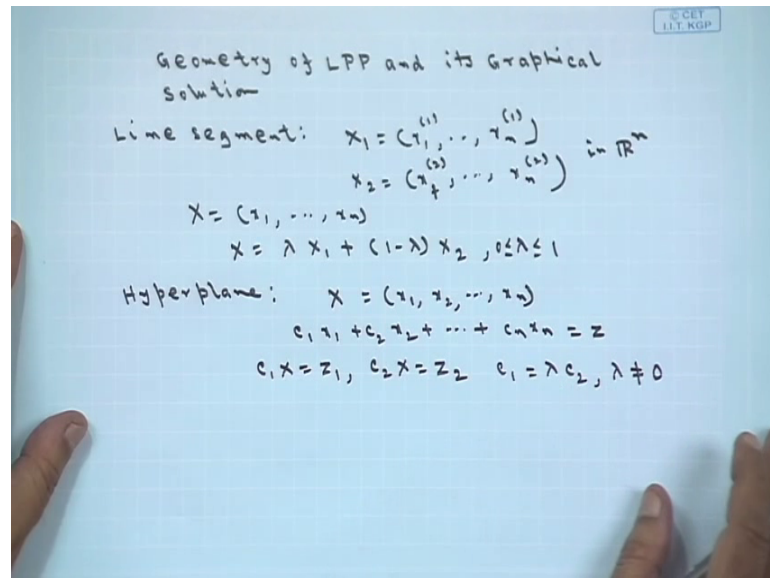 © CET
I.I.T. KGP
Geometry of LPP and its Graphical
Solution
Line segment: X₁ = (x₁⁽¹⁾, ..., xₙ⁽¹⁾)
X₂ = (x₁⁽²⁾, ..., xₙ⁽²⁾) in ℝⁿ
X = (x₁, ..., xₙ)
X = λ X₁ + (1-λ) X₂ , 0≤λ≤1
Hyperplane: X = (x₁, x₂, ..., xₙ)
c₁ x₁ + c₂ x₂ + ... + cₙxₙ = z
c₁X = z₁, c₂X = z₂ c₁ = λc₂, λ ≠ 0